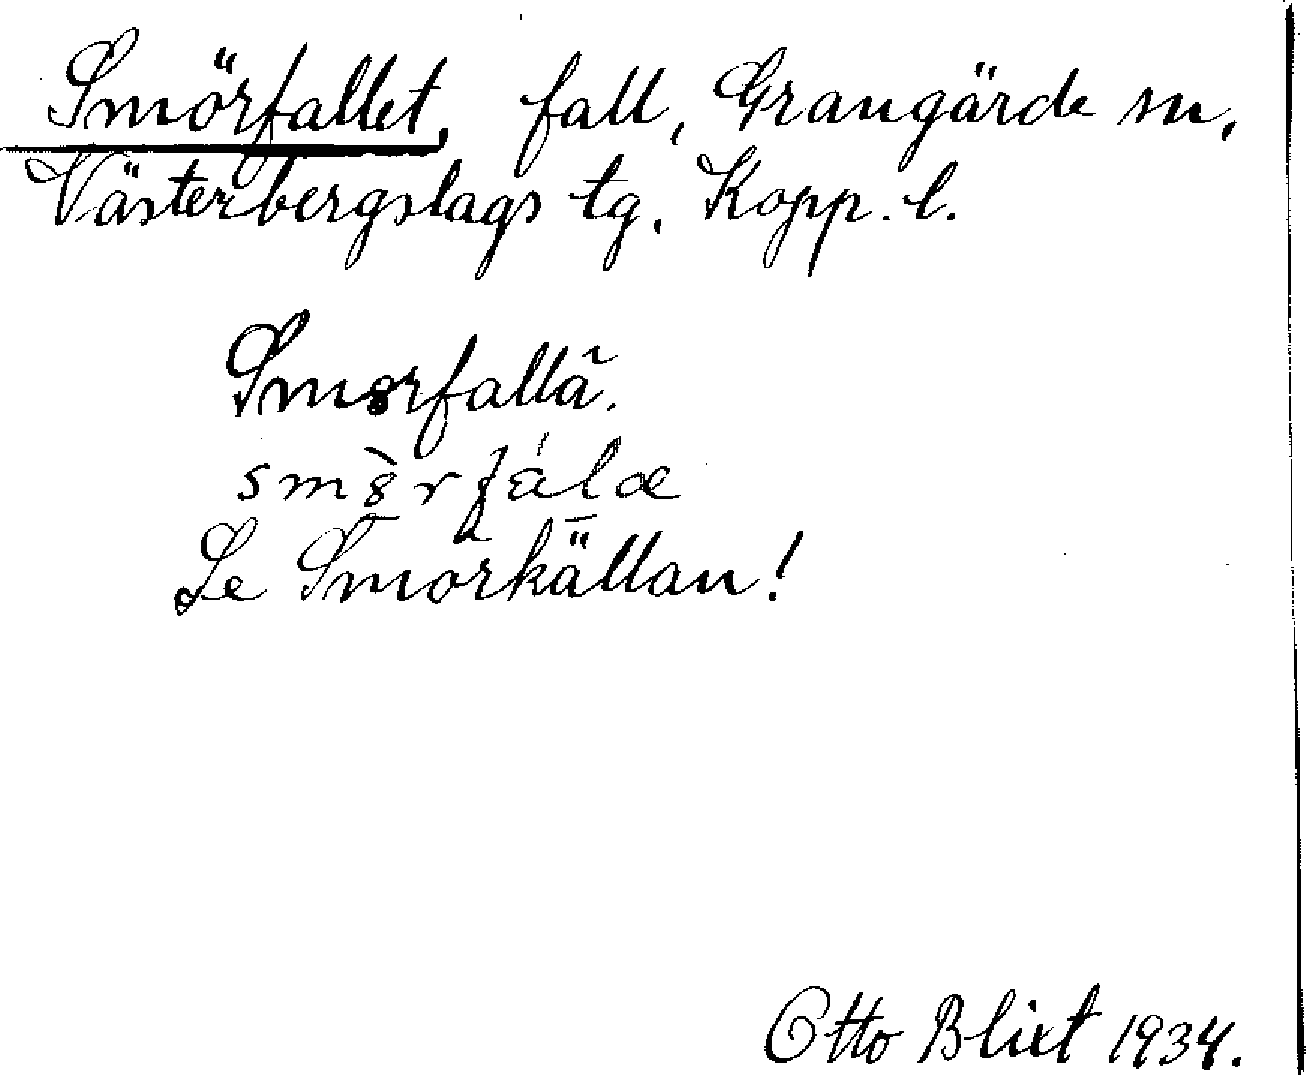 Smörfallet, fall, Grangärde sn,
Västerbergslags tg. Kopp. l.
Smörfallä.
smàrfálæ
Se Smörkällan!
Otto Blixt 1934.